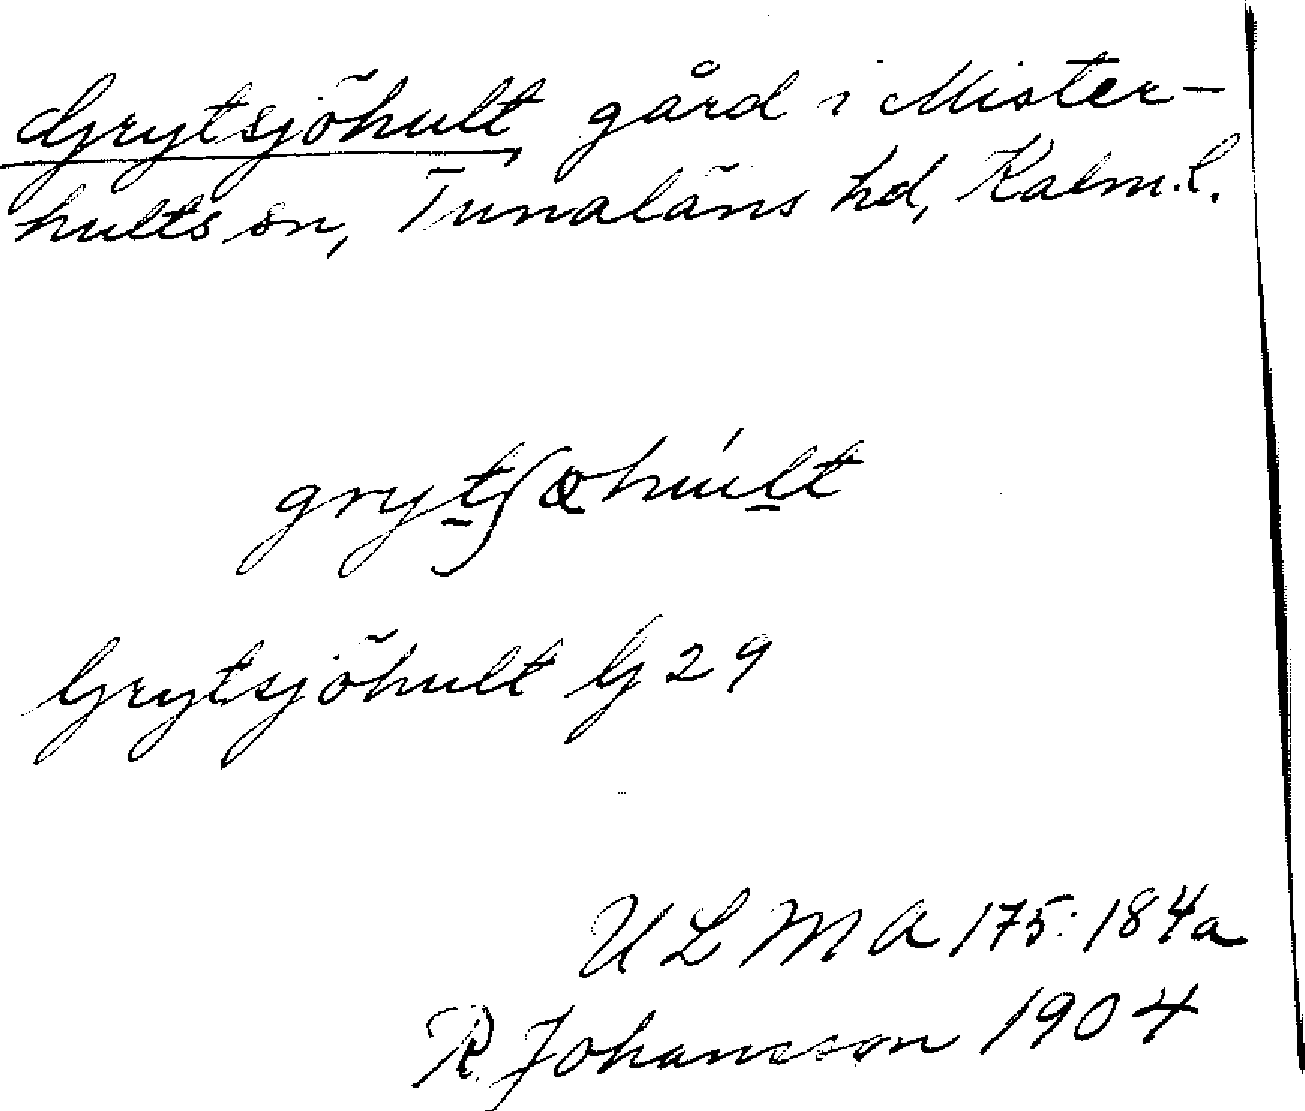 Grytsjöhult, gård i Mister-
hults sn, Tunaläns hd, Kalm. l.
grytʃøhúlt
Grytsjöhult G 29
ULMA 175:184a
R. Johansson 1904